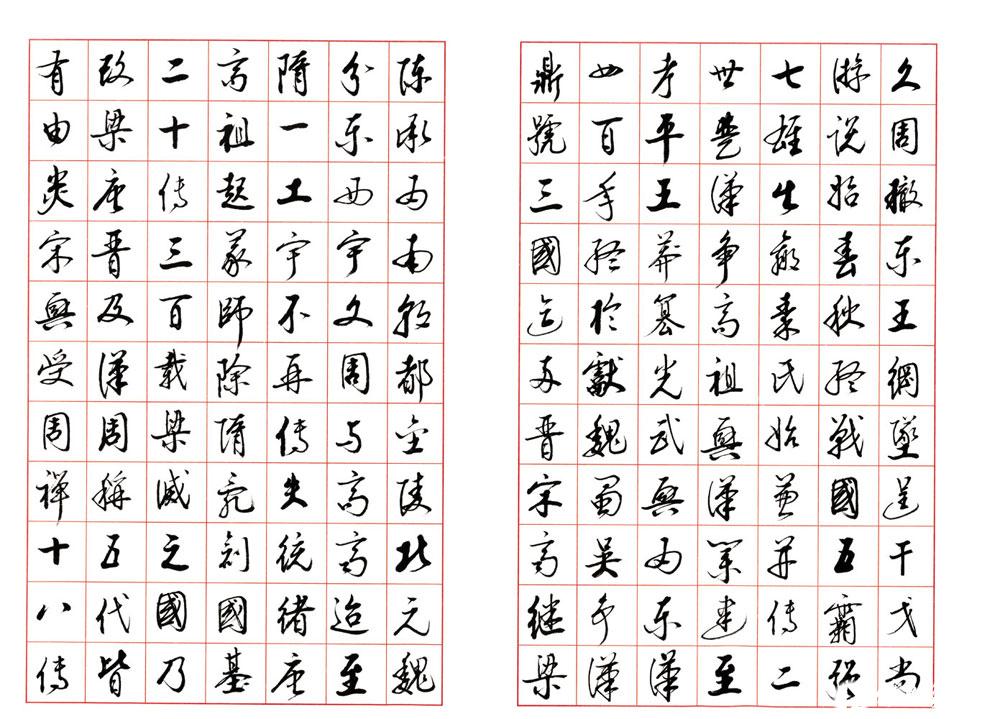 久周轍东王綱墜逞干戈尚
游说始春秋终戰國五霸强
七雄出嬴秦氏始兼并传二
世楚漢争高祖興漢業建至
孝平王莽篡光武興为东漢
四百年终於獻魏蜀吴争漢
鼎號三國迄两晋宋齐继梁
陈承为南朝都金陵北元魏
分东西宇文周与高齐迨至
隋一土宇不再传失统绪唐
高祖起義師除隋乱創國基
二十传三百載梁滅之國乃
改梁唐晋及漢周稱五代皆
有由炎宋興受周禪十八传